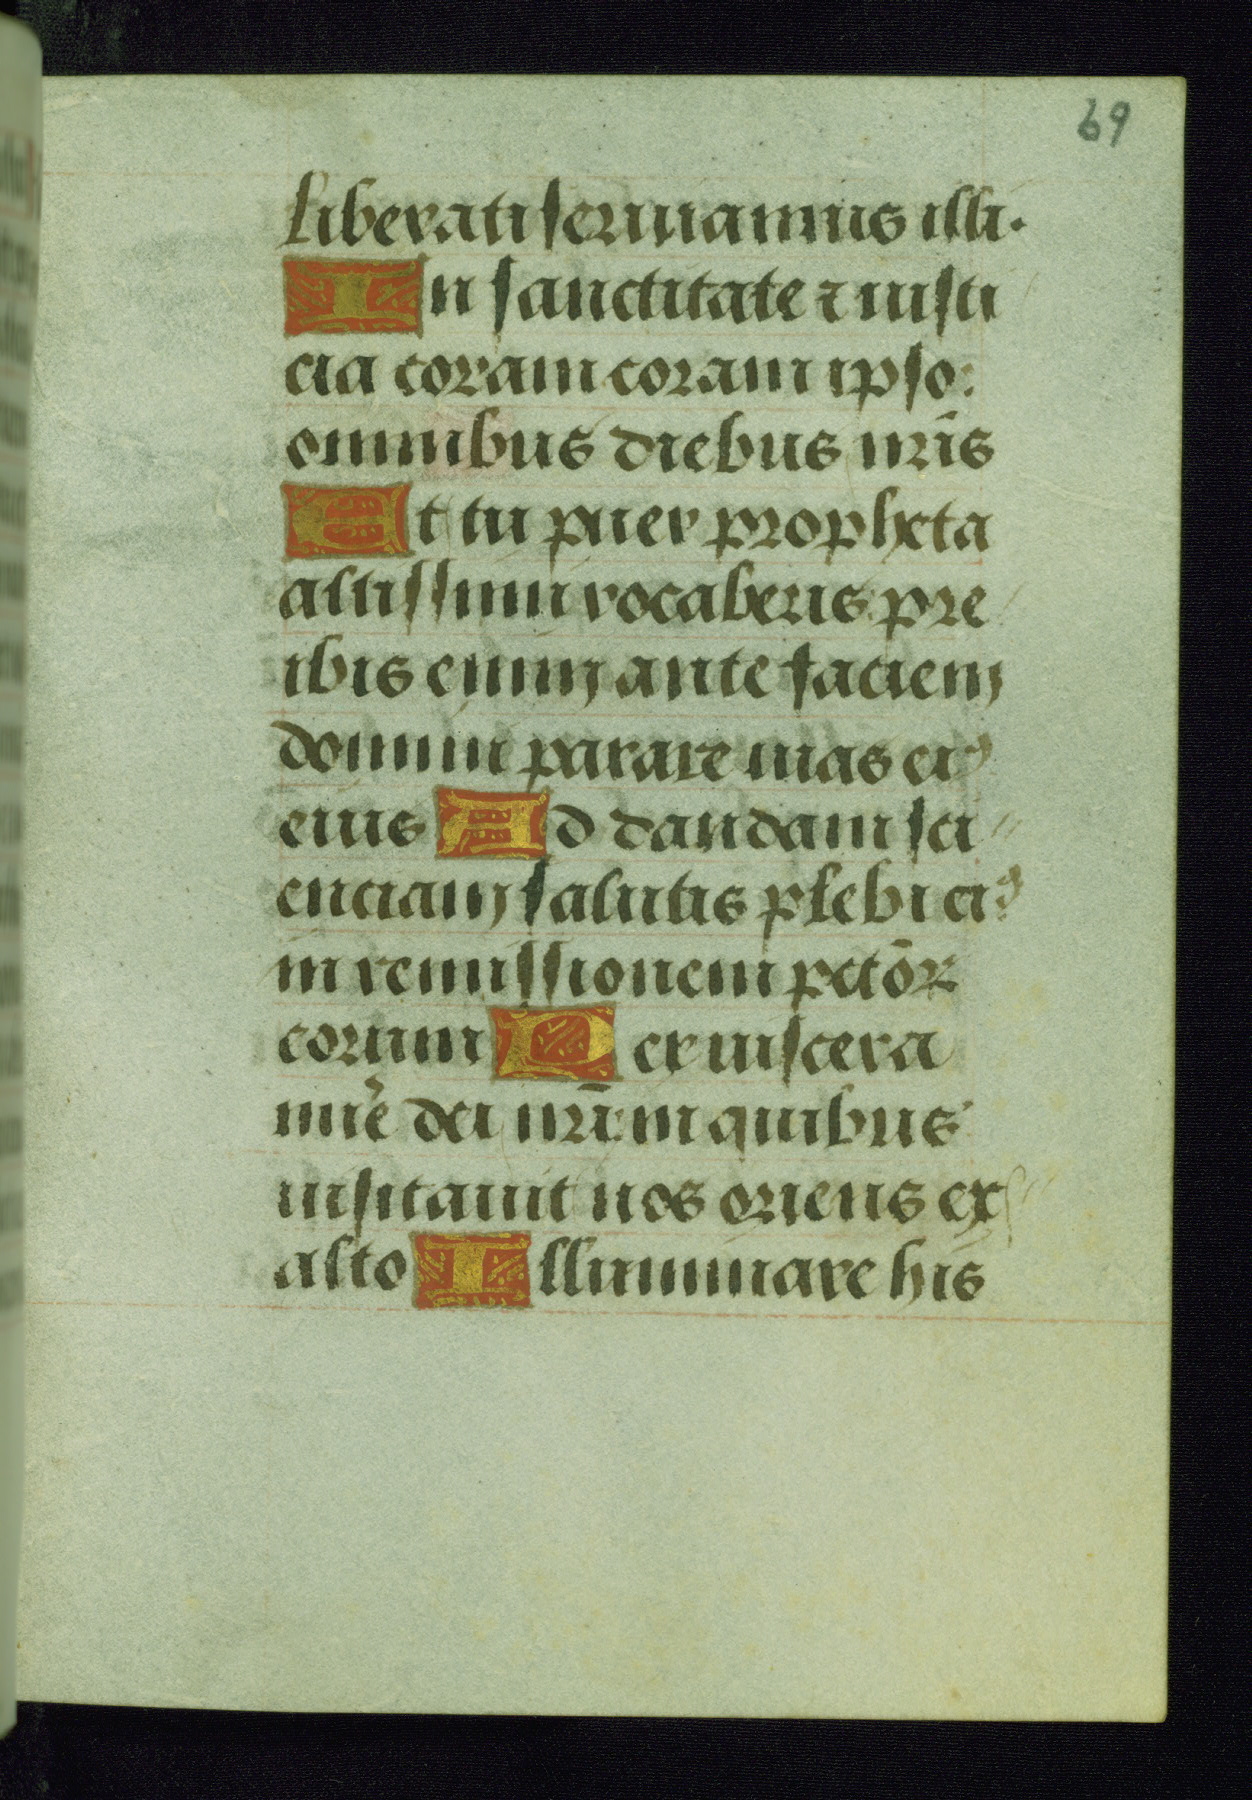 69
liberati seruiamus illi.
In sanctitate ⁊ iusti
cia coram coram ipso:
omnibus diebus nr̄is
Et tu puer propheta
altissimi vocaberis pre
ibis enim ante faciem
domini parare uias ei⁹
eius Ad dandam sci
enciam salutis plebi ei⁹
in remissionem pctōr
eorum Per uiscera
mīe dei nr̄i in quibus
uisitauit nos oriens ex
alto Illuminare his